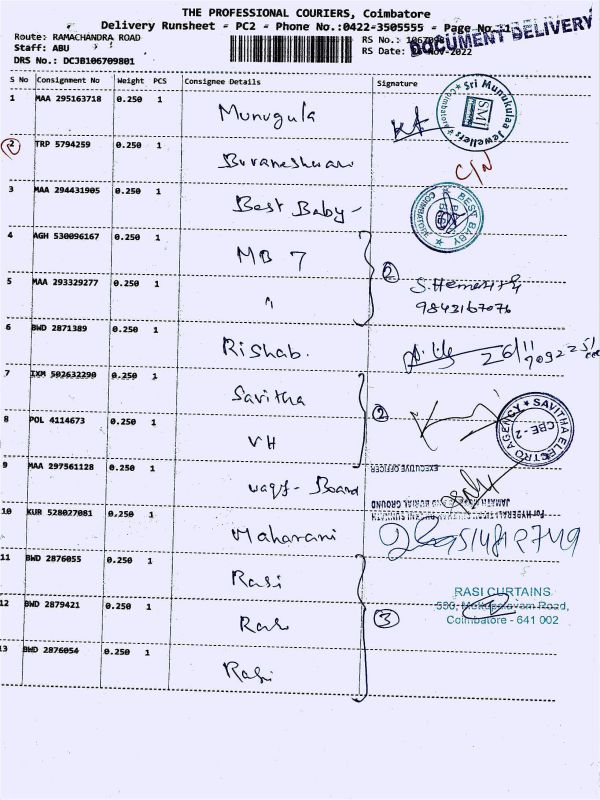 THE PROFESSIONAL COURIERS, Coimbatore
Delivery Runsheet - PC2 - Phone No.:0422-3505555 - Page No. 1
DOCUMENT DELIVERY
Route: RAMACHANDRA ROAD
Staff: ABU
DRS No.: DCJB106709801
RS No.:
RS Date: Nov-2022
S No Consignment No Weight PCS Consignee Details Signature
1 MAA 295163718 0.250 1 Munugula
Sri Munukulaa Jewellers Coimbatore SMJ
2 TRP 5794259 0.250 1 Buvaneshwari
3 MAA 294431905 0.250 1 Best Baby -
BEST BABY COIMBATORE
4 AGH 530096167 0.250 1 MB 7
2
5 MAA 293329277 0.250 1 "
9843167076
6 BWD 2871389 0.250 1 Rishab.
26/11
7 IXM 502632290 0.250 1 Savitha
2
SAVITHA ELECTRO AGENCY CBE-2
8 POL 4114673 0.250 1 VH
EXECUTIVE OFFICER
9 MAA 297561128 0.250 1 vaqf - Board
JAMATH BURIAL GROUND
10 KUR 528027081 0.250 1 Maharani
11 BWD 2876055 0.250 1 Rasi
RASI CURTAINS
12 BWD 2879421 0.250 1 Rasi
3
Road,
Coimbatore - 641 002
13 BWD 2876054 0.250 1 Rasi